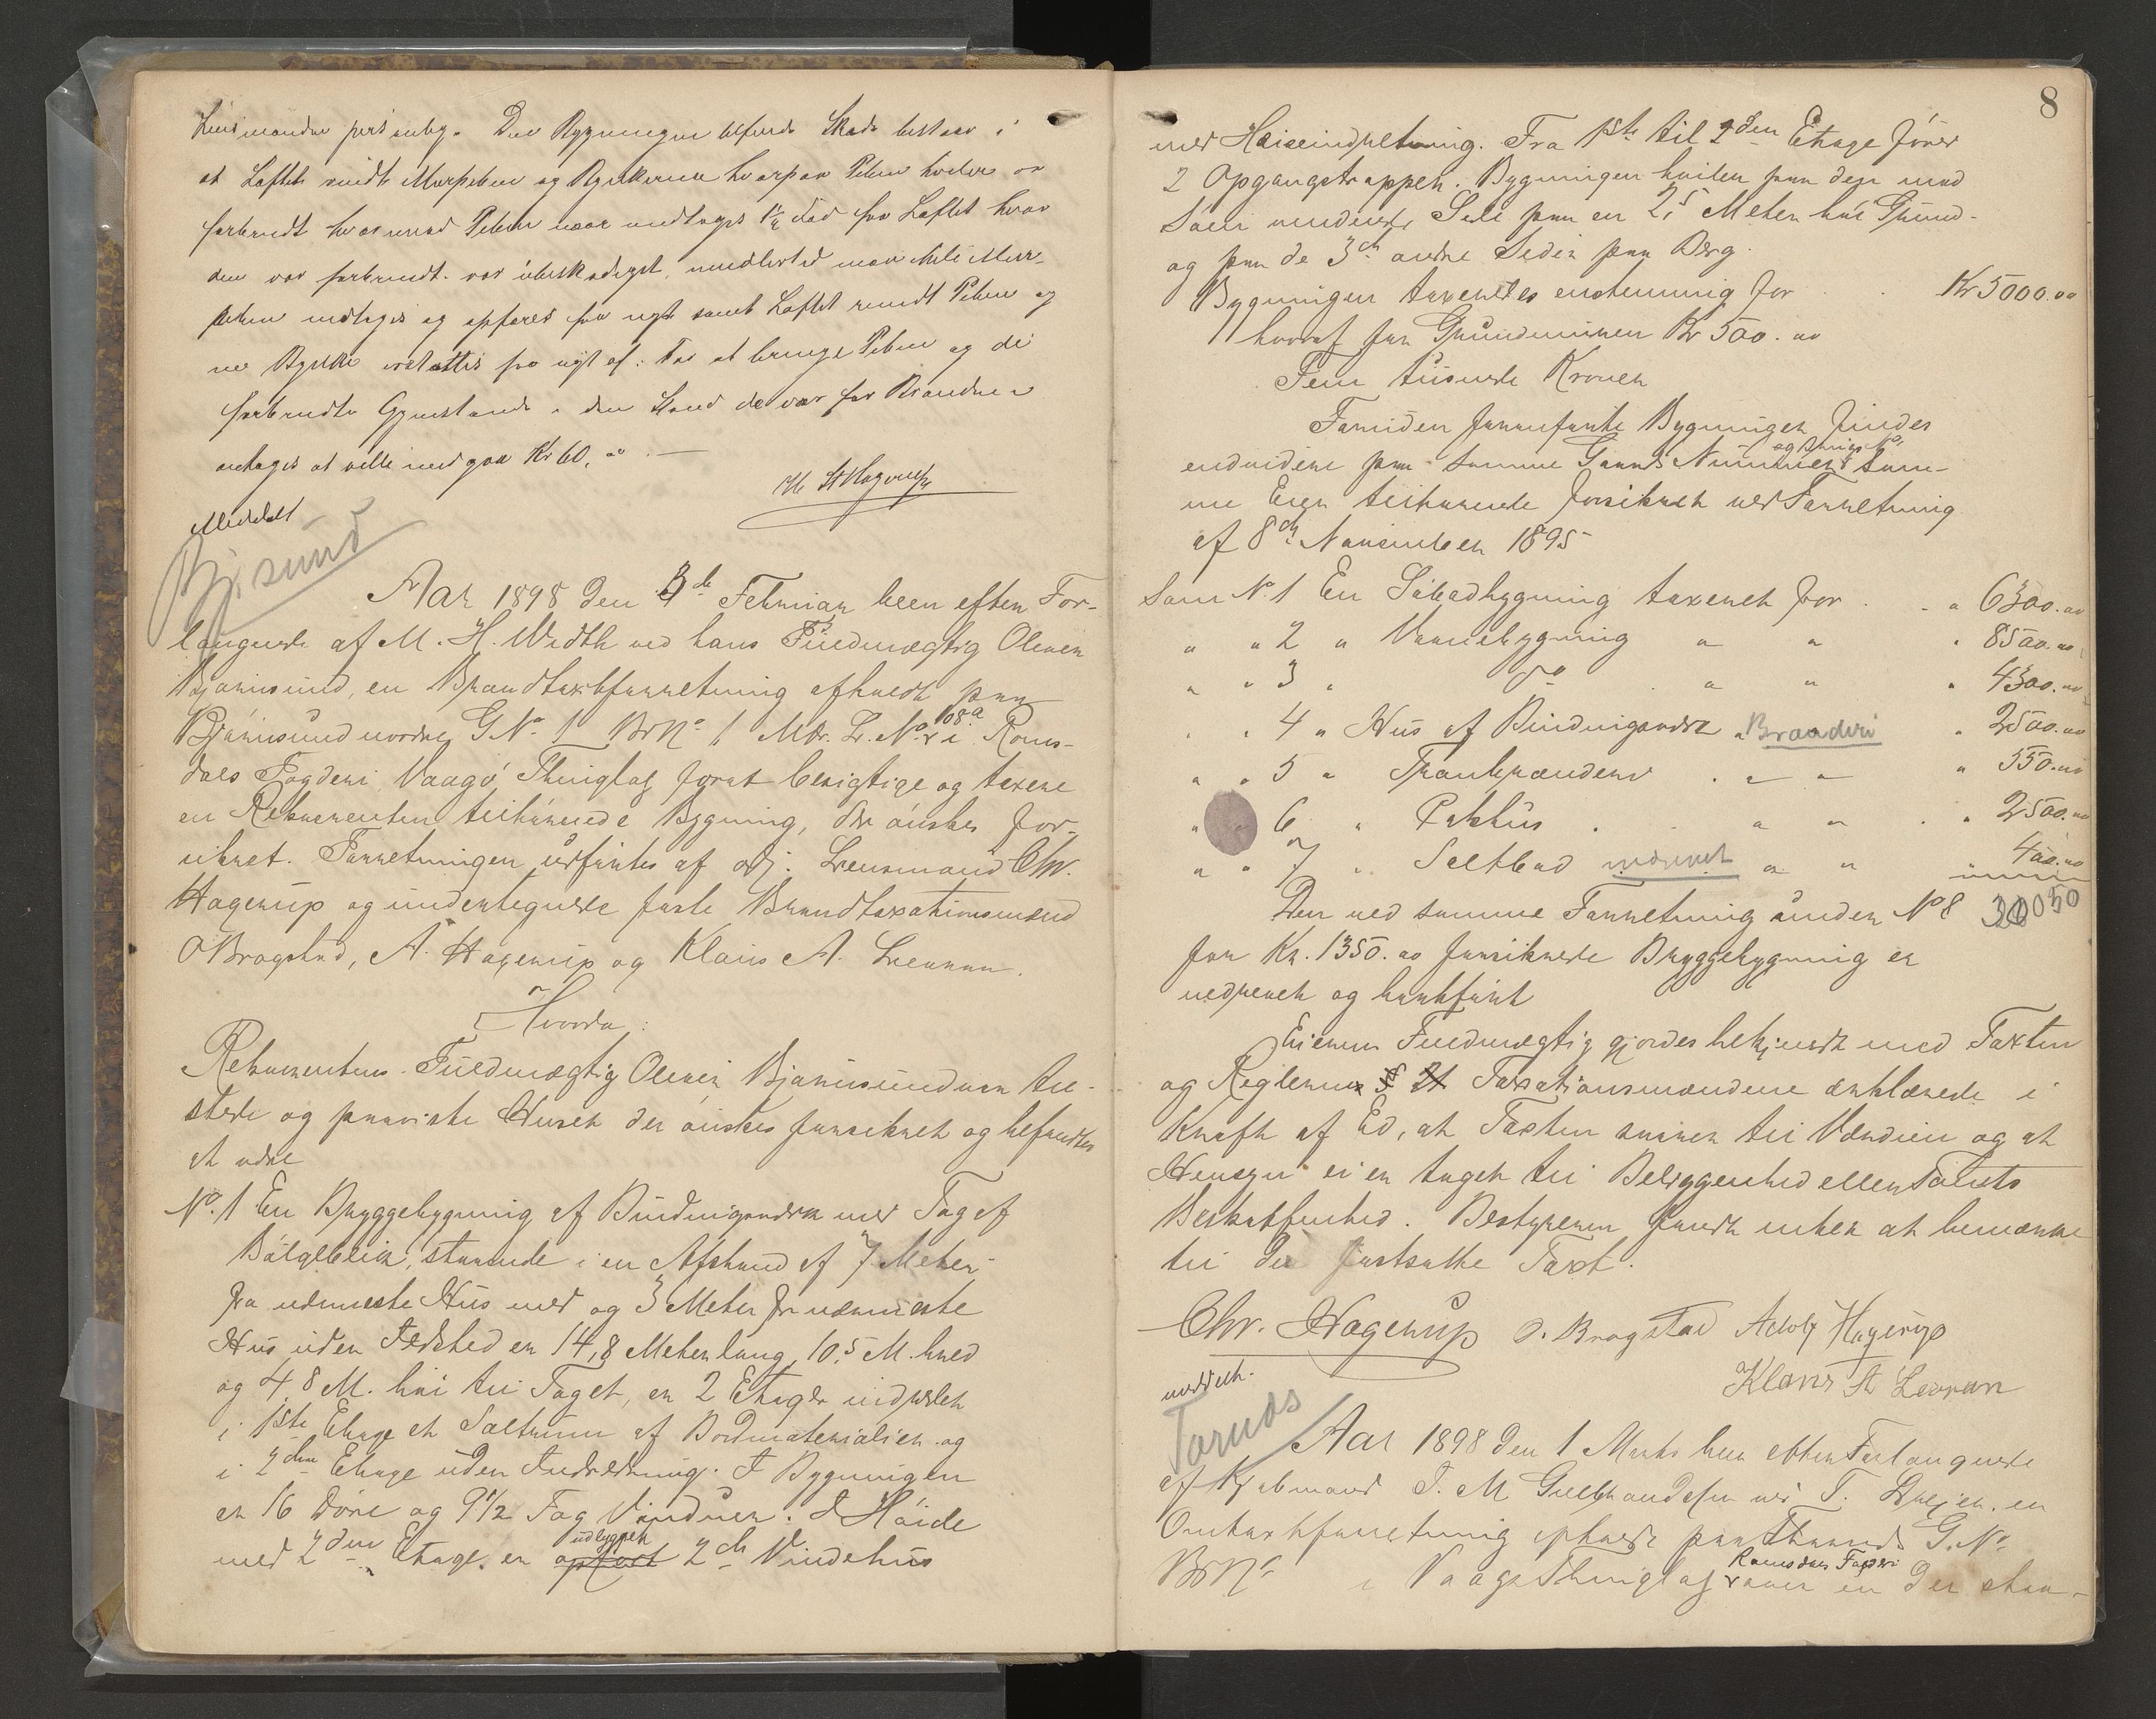 Lensmanden personlig. Den Bygningen tilførte Skade bestaar i
at Loftet rundt Murpiben og Bjelkerne hvorpaa Piben hviler er
forbrændt hvormed Piben maa nedtages
den var forbrændt var ubeskadiget, imidlertid maa hele Mur-
piben nedtages og opføres fra nyt samt Loftet rundt Piben og
ne Bjelke erstattes fra nyt af. For at bringe Piben og de
forbrændte Gjenstande i den Stand de var før Branden
antages at ville medgaa Kr 60,00.
Chr Hagerup
Meddelt
Bj.sund
Aar 1898 den 3de Februar blev efter For-
langende af M. H. Width ved hans Fuldmægtig Oluer
Bjørnsund, en Brandtaxtforretning afholdt paa
Bjørnsund nordre G No 1 BrNo 1 Mtr. L. No 108a i Roms-
dals Fogderi Vaagø Thinglag forat besigtige og taxere
en Rekvirenten tilhørende Bygning, der ønskes for-
sikret. Forretningen udførtes af Lensmand Chr.
Hagerup og undertegnede faste Brandtaxationsmænd
O Bragstad, A. Hagerup og Klaus A. Leervan.
Hvorda:
Rekvirentens Fuldmægtig Oluer Bjørnsund var til-
stede og paaviste Huset der ønskes forsikret og befandtes
at være
No. 1 En Bryggebygning af Bindingsværk med Tag af
Bølgeblik, staaende i en Afstand af 7 Meter
fra nærmeste Hus med og 3 Meter fra nærmeste
Hus uden Ildsted er 14,8 Meter lang, 10,5 M. bred
og 4,8 M. høi til Taget, er 2 Etager indredet
i 1ste Etage et Saltrum af Bordmaterialier og
i 2den Etage uden Indredning. I Bygningen
er 16 Døre og 9 1/2 Fag Vinduer. I Høide
med 2den Etage er udbygget 2de Vindehus
8
med Heiseindretning. Fra 1ste til 2den Etage fører
2 Opgangstrapper. Bygningen hviler paa den mod
Søen vendende Side paa en 2,5 Meter høi Grund-
og paa de 3de andre Sider paa Berg.
Bygningen taxeredes enstemmig for Kr 5000.00
hvoraf for Grundmuren Kr 500.00
Fem tusende Kroner
Foruden foranførte Bygninger findes
endvidere paa samme Gaards Nummer og Brugs No. sam-
me Eier tilhørende forsikret ved Forretning
af 8de November 1895
Som No. 1 En Søbodbygning taxeret for " 6300.00
" " 2 " Vaanebygning " " " 8500.00
" " 3 " Do " " " 4300.00
" " 4 " Hus af Bindingsværk " Brænderi " 2500.00
" " 5 " Tranbrænderi " " " 550.00
" " 6 " Pakhus " " " 2500.00
" " 7 " Saltbod nedrevet " " " 400.00
Den ved samme Forretning under No 8
for Kr. 1350.00 forsikrede Bryggebygning er
nedrevet og bortført
Eierens Fuldmægtig gjordes bekjendt med Taxten
og Reglerne Taxationsmændene erklærede i
Kraft af Ed, at Taxten svarer til Værdien og at
Hensyn ei er taget til Beliggenhed eller Tomts
Beskaffenhed. Bestyreren fandt intet at bemærke
til den fastsatte Taxt.
Chr. Hagerup O. Bragstad Adolf Hagerup
Klaus A Leervan
meddelt.
Tornes
Aar 1898 den 1 Marts blev efter Forlangende
af Kjøbmand T. M Gulbrandsen ved en
Omtaxtforretning afholdt paa G. No
BrNo i Vaagø Thinglag Romsdals Fogderi over en der staa-